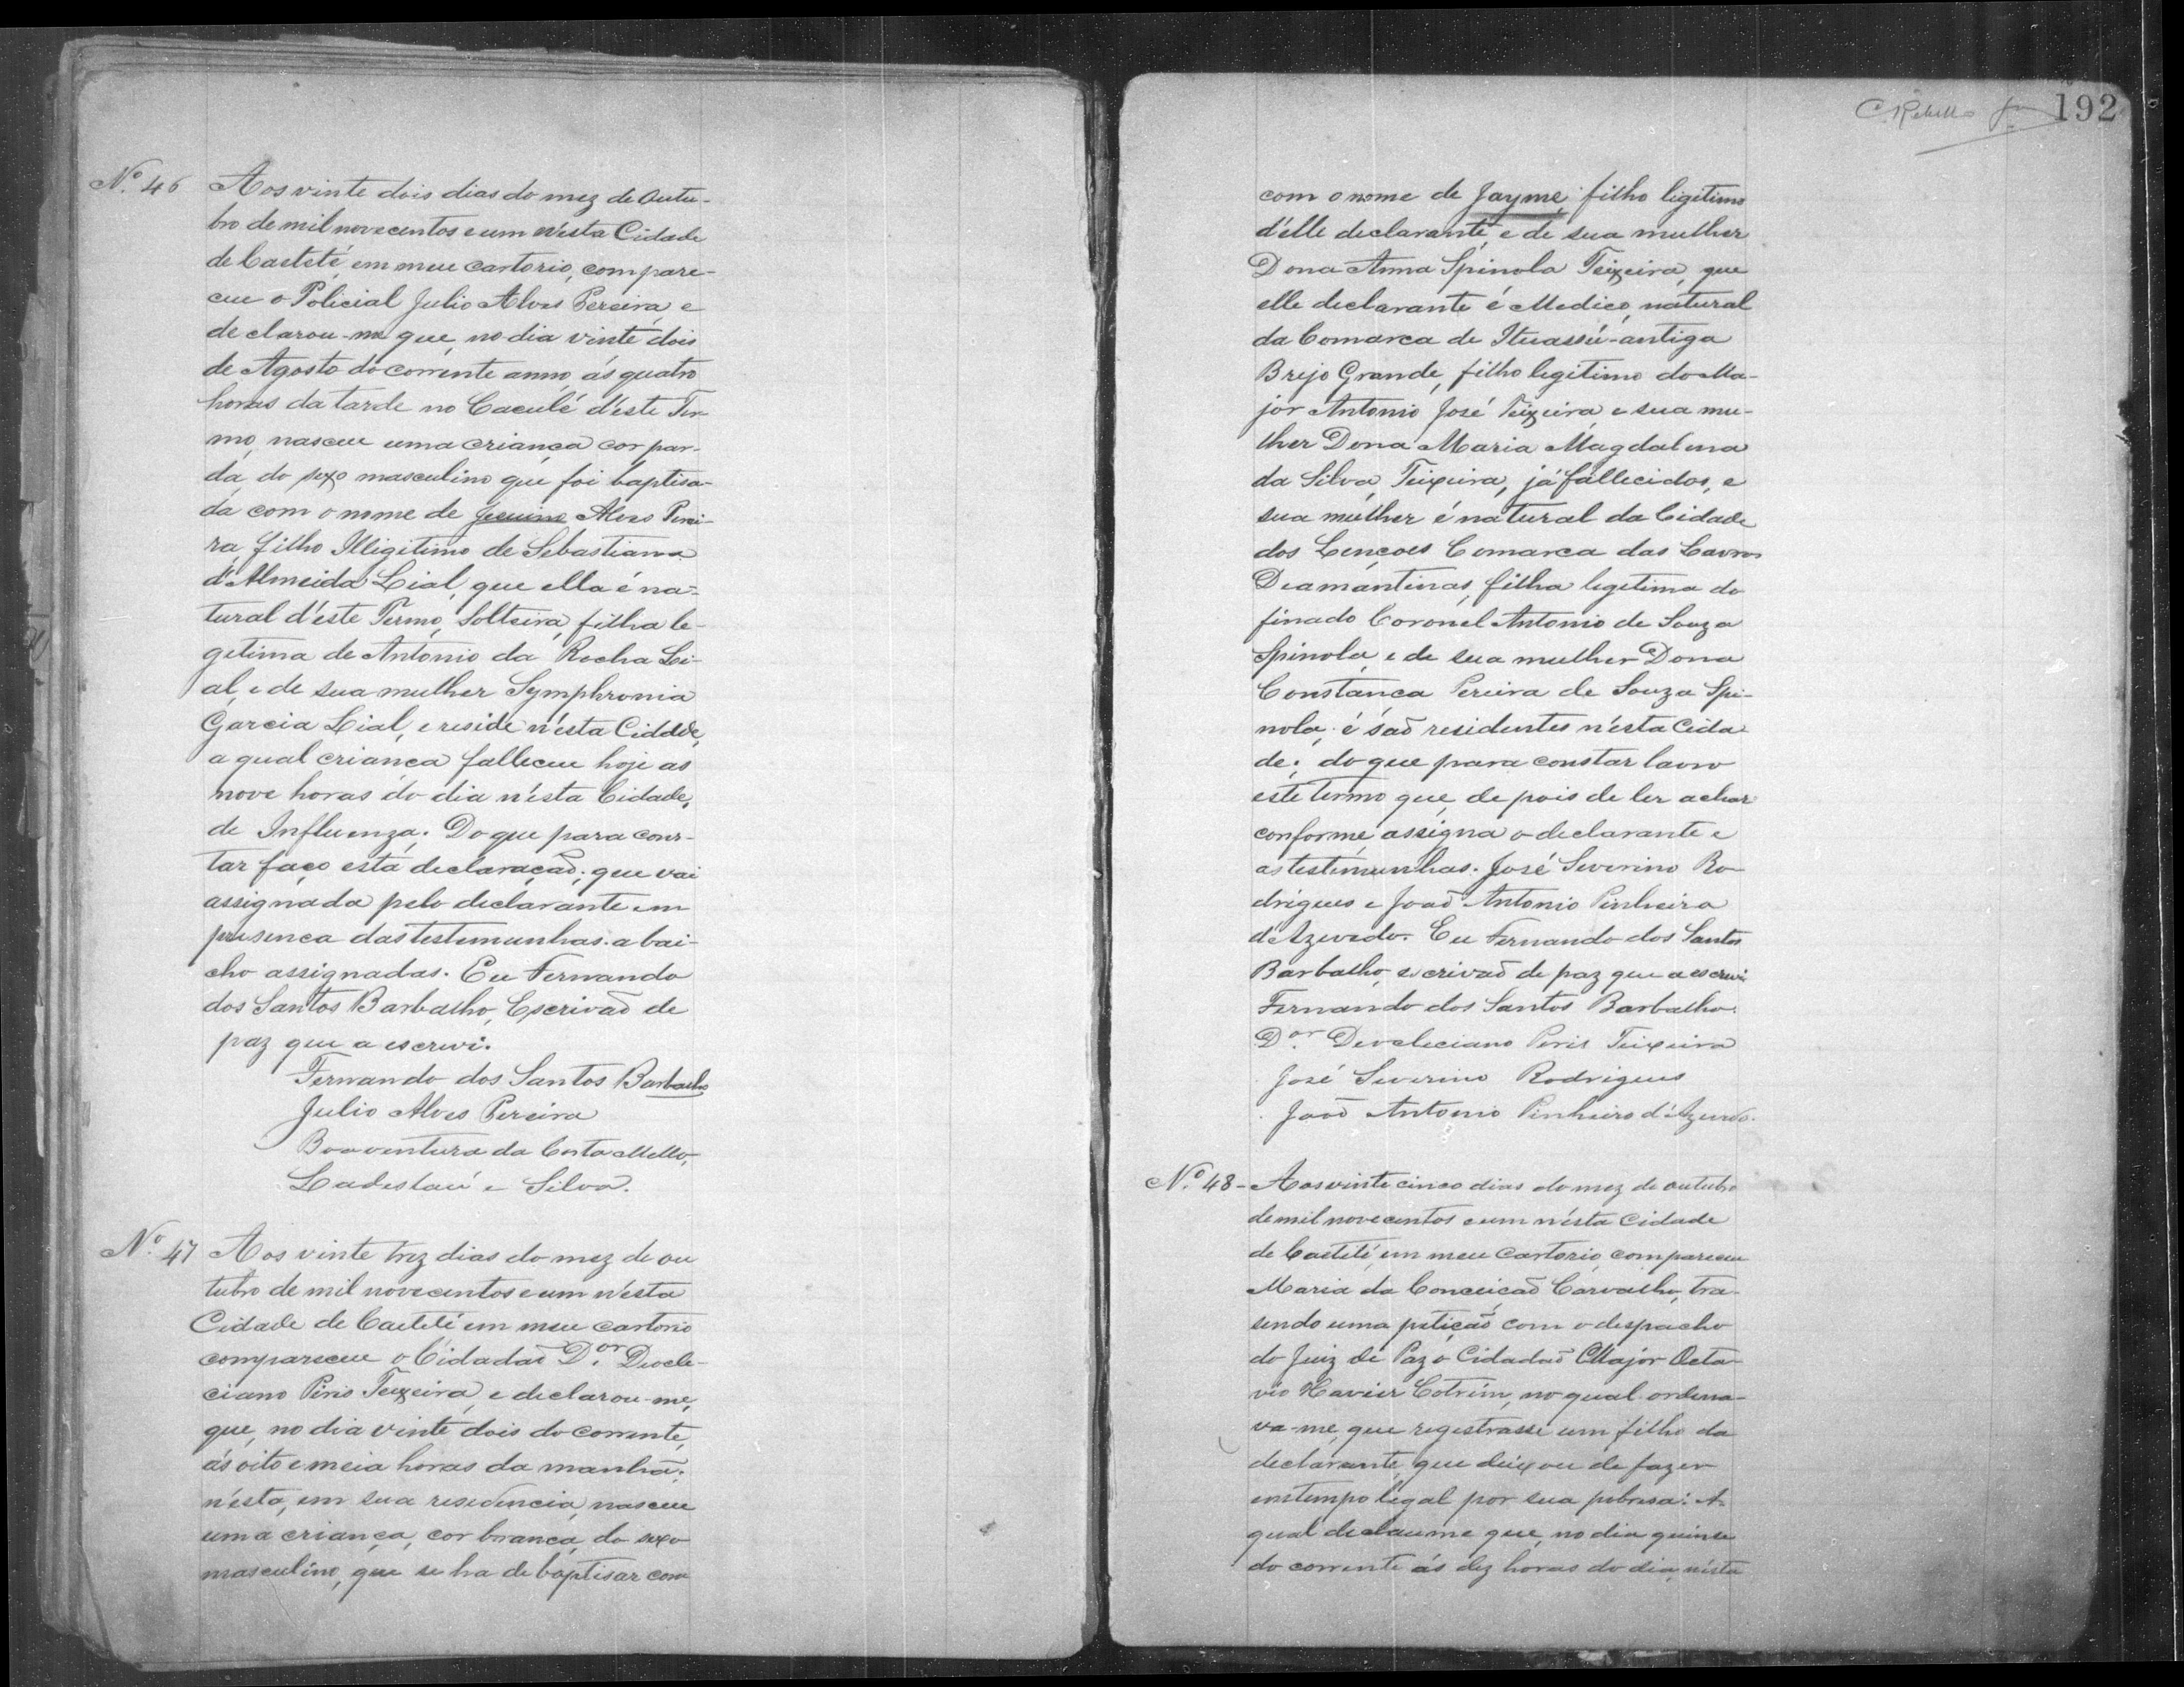 Nº 46 Aos vinte dois dias do mez de Outu-
bro de mil novecentos e um n'esta Cidade
de Caeteté, em meu cartorio, compare-
ceu o Policial Julio Alves Pereira, e
declarou-me que, no dia vinte dois
de Agosto do corrente anno, ás quatro
horas da tarde no Caculé d'este Ter-
mo, nasceu uma criança, cor par-
da, do sexo masculino que foi baptisa-
da com o nome de Alves Perei-
ra, filho Illigitimo de Sebastiana
d'Almeida Lial, que ella é na-
tural d'este Termo, Solteira, filha le-
getima de Antonio da Rocha Li-
al, e de sua mulher Symphronia
Garcia Lial, e reside n'esta Cidade,
a qual criança falleceu hoje as
nove horas do dia n'esta Cidade,
de Influenza. Do que para cons-
tar faço esta declaração, que vai
assignada pelo declarante em
presença das testemunhas abai-
cho assignadas. Eu Fernando
dos Santos Barbalho, Escrivaõ de
paz que a escrevi.
Fernando dos Santos Barbalho
Julio Alves Pereira
Boaventura da Costa Mello,
Ladeslaú e Silva.
Nº 47 Aos vinte trez dias do mez de ou
tubro de mil novecentos e um n'esta
Cidade de Caeteté em meu cartorio
compareceu o Cidadaõ Dor Deocle-
ciano Piris Teixeira, e declarou-me,
que, no dia vinte dois do corrente,
ás oito e meia horas da manhã,
n'esta, em sua residencia, nasceu
uma criança, cor branca, do sexo
masculino, que se ha de baptisar com
192
com o nome de Jayme, filho ligitimo
d'elle declarante, e de sua mulher
Dona Anna Spinola Teixeira, que
elle declarante é Medico, natural
da Comarca de Ituassú-antiga
Brejo Grande, filho legitimo do Ma-
jor Antonio José Teixeira, e sua mu-
lher Dona Maria Magdalena
da Silva Teixeira, já fallecidos, e
sua mulher é natural da Cidade
dos Lençoes Comarca das Lavras
Deamantinas, filha legetima do
finado Coronel Antonio de Souza
Spinola, e de sua mulher Dona
Constança Pereira de Souza Spi-
nola, é saõ residentes n'esta Cida-
de; do que para constar lavro
este termo que, depois de ler achar
conforme, assigna o declarante e
as testemunhas. José Severino Ro-
drigues e Joaõ Antonio Pinheiro
d'Azevedo. Eu Fernando dos Santos
Barbalho, escrivaõ de paz que a escrevi
Fernando dos Santos Barbalho.
Dor Deocleciano Piris Teixeira
José Severino Rodrigues
Joaõ Antonio Pinheiro d'Azevedo.
Nº 48 - Aos vinte cinco dias do mez de outubro
de mil novecentos e um n'esta Cidade
de Caeteté, em meu Cartorio, compareceu
Maria da Conceicaõ Carvalho, tra-
sendo uma petição com o despacho
do Juiz de Paz o Cidadaõ Major Octa-
vio Xavier Cotrim, no qual ordena-
va-me, que registrasse um filho da
declarante, que deixou de fazer
em tempo legal por sua pobresa: A
qual declarou-me que, no dia quinse
do corrente ás dez horas do dia, n'esta